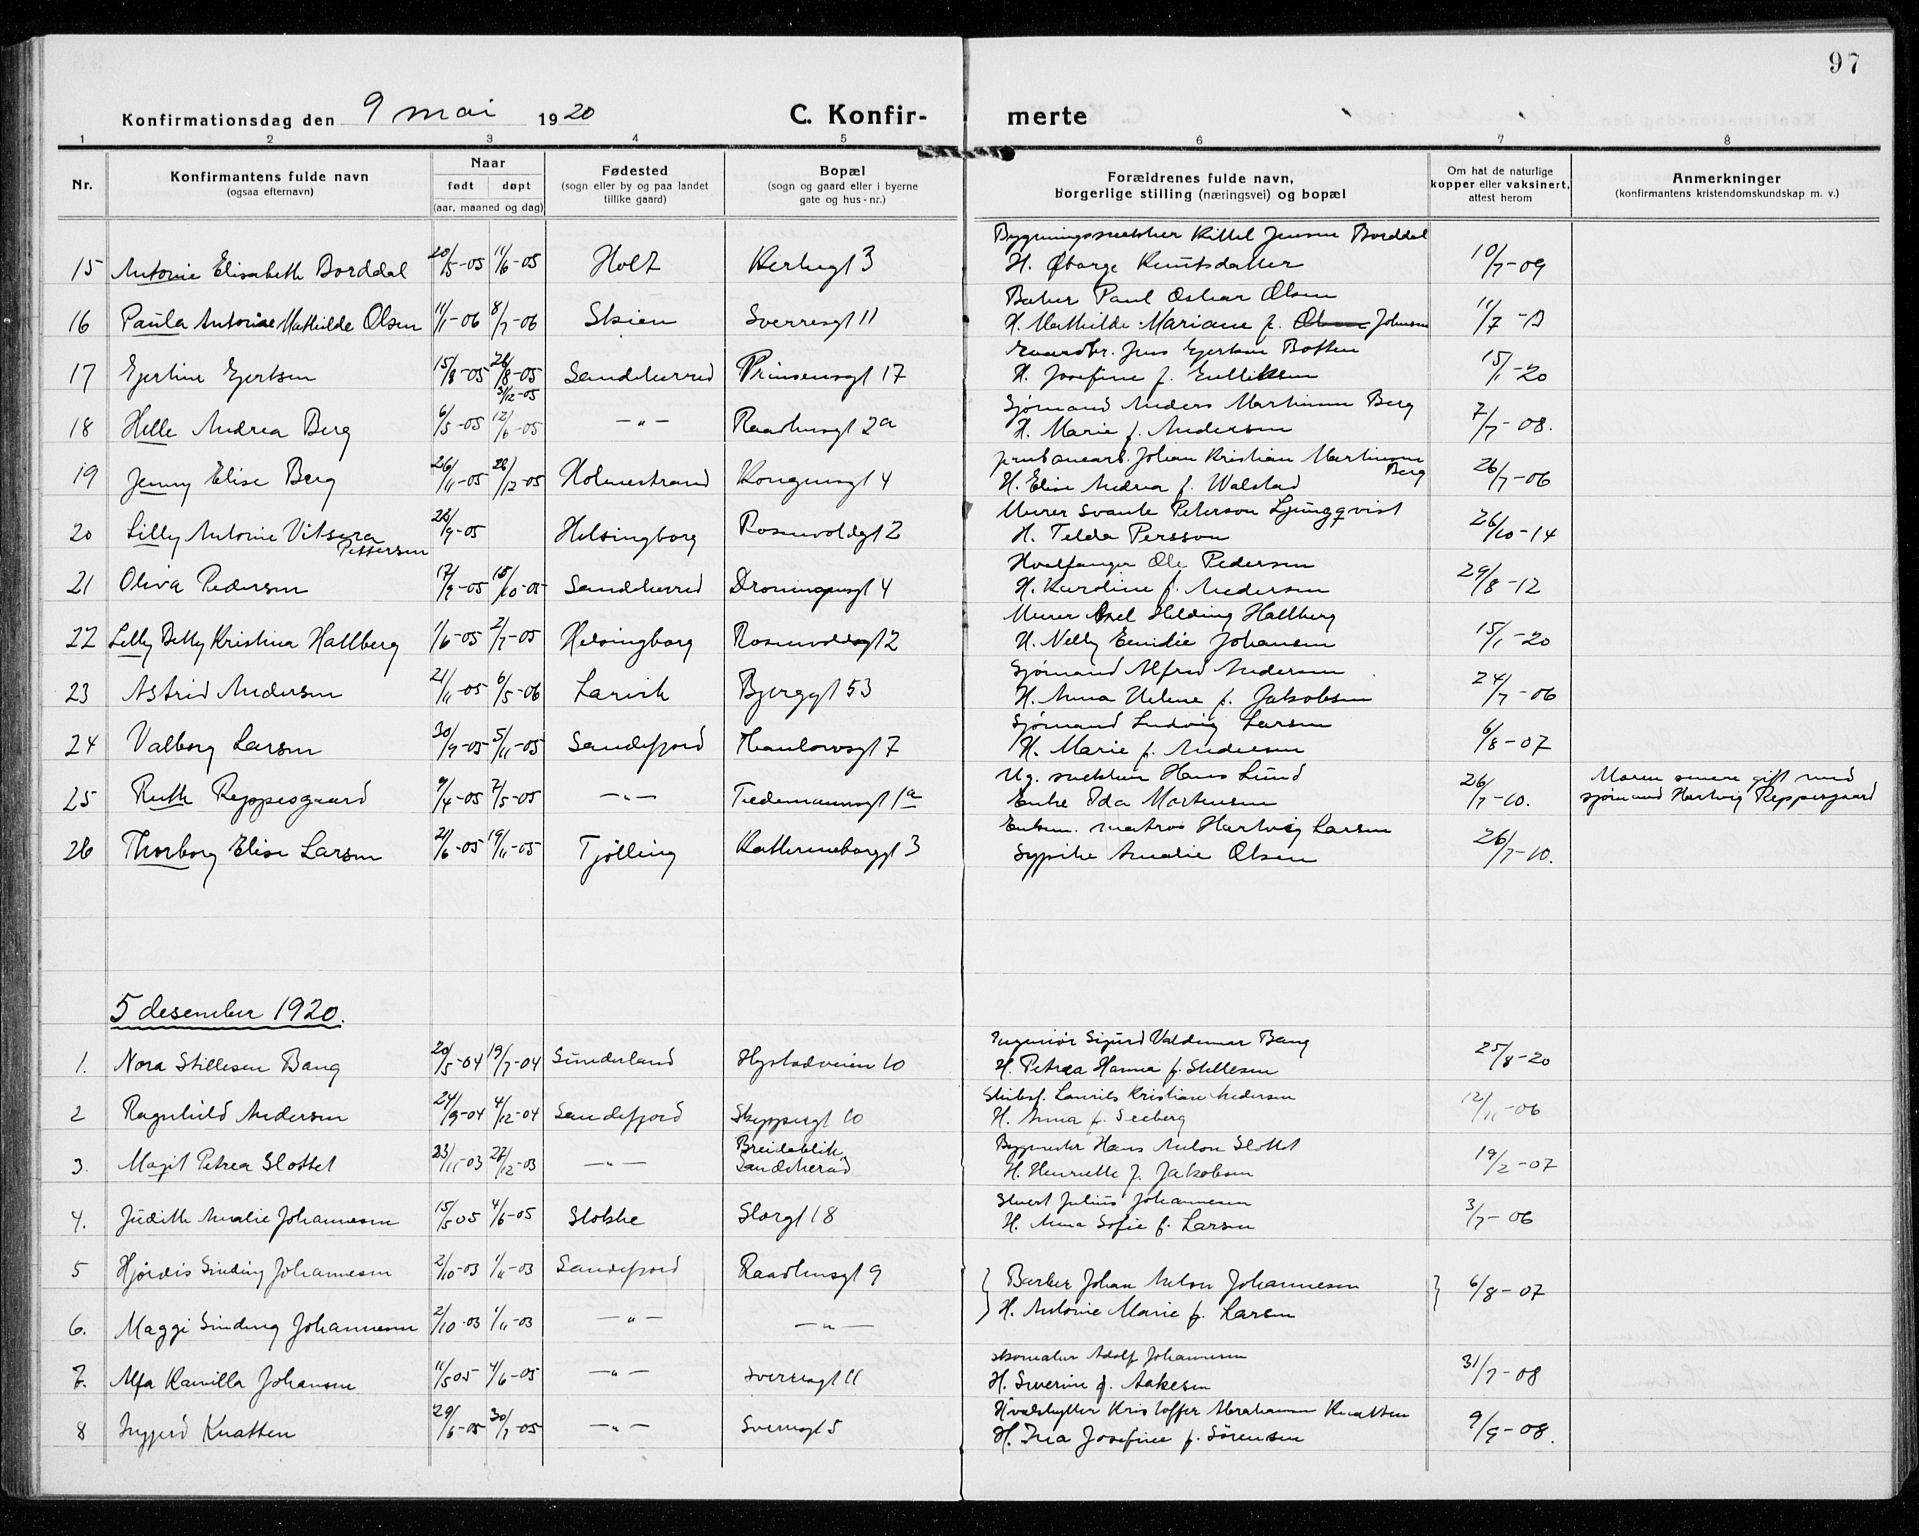 97
Konfirmationsdag den 9 mai 1920 C. Konfir- merte
1 2 3 4 5 6 7 8
Nr. Konfirmantens fulde navn (ogsaa efternavn) Naar født døpt (aar, maaned og dag) Fødested (sogn eller by og paa landet tillike gaard) Bopæl (sogn og gaard eller i byerne gate og hus-nr.) Forældrenes fulde navn, borgerlige stilling (næringsvei) og bopæl Om hat de naturlige kopper eller vaksinert, attest herom Anmerkninger (konfirmantens kristendomskundskap m. v.)
Bygningssnekker Kittel Jensen Borddal
15 Antonie Elisabeth Borddal 20/5-05 11/6-05 Holt 3 H. Knutsdatter 10/7-09
Baker Paul Oskar Olsen
16 Paula Antonie Mathilde Olsen 11/1-06 8/7-06 Skien Sverresgt 11 H. Mathilde Mariane f. Johnsen 11/7-
Jens Ejertsen Botten
17 Ejertine Ejertsen 15/8-05 Sandeherred Prinsensgt 17 H. Josefine f. 15/1-20
3/12-05
Sjømand Anders Martinsen Berg
18 Helle Andrea Berg 6/5-05 12/6-05 —„— Raadhusgt 2a H. Marie f. Andersen 7/7-08.
Johan Kristian Martinsen Berg
19 Jenny Elise Berg 26/11-05 28/12-05 Holmestrand Kongensgt 4 H. Elise Andrea f. Walstad 26/7-06
Murer Svante Peterson Ljungqvist
20 Lilly Antonie Pettersen 28/9-05 Helsingborg Rosenvoldgt 2 H. Telda Persson 26/10-14
Hvalfanger Ole Pedersen
21 Oliva Pedersen 17/9-05 15/10-05 Sandeherred Dronningensgt 4 H. Karoline f. Andersen 29/8-12
Murer Axel Hilding Hallberg
22 Lilly Betty Kristina Hallberg 1/6-05 2/7-05 Helsingborg Rosenvoldsgt 2 H. Nelly Emilie Johansen 15/1-20
Sjømand Alfred Andersen
23 Astrid Andersen 21/11-05 6/5-06 Larvik Bjerggt 53 H. Anna Helene f. Jakobsen 24/7-06
Sjømand Ludvig Larsen
24 Valborg Larsen 30/9-05 5/11-05 Sandefjord Haukovsgt 7 H. Marie f. Andersen 6/8-07
Ug. snekker Hans Lund Moren senere gift med
25 Ruth Reppesgaard 9/4-05 7/5-05 —„— Tiedemannsgt 1a Enke Ida Mortensen 26/7-10. sjømand Hartvig Reppesgaard
matros Hartvig Larsen
26 Thorborg Elise Larsen 21/6-05 19/11-05 Tjølling Katherineborggt 3 Sypike Amalie Olsen 26/7-10.
5 desember 1920.
Ingeniør Sigurd Valdemar Bang
1. Nora Stillesen Bang 20/5-04 19/7-04 Sunderland Hystadveien 10 H. Petrea Hanna f. Stillesen 25/8-20
Skibsf. Laurits Kristian Andersen
2 Ragnhild Andersen 24/9-04 4/12-04 Sandefjord Skippergt 10 H. Anna f. Seeberg 12/11-06
Bygmester Hans Anton Slottet
3. Magit Petrea Slottet 23/11-03 27/12-03 —„— Breidablik Sandeherad H. Henriette f. Jakobsen 19/2-07
Stuert Julius Johannesen
4. Judith Amalie Johannesen 15/5 05 4/6-05 Stokke Storgt 18 H. Anna Sofie f. Larsen 3/7-06
5 Hjørdis Sinding Johannesen 2/10-03 1/11-03 Sandefjord Raadhusgt 9 Barber Johan Anton Johannesen 6/8-07
6. Maggi Sinding Johannesen 2/10-03 1/11-03 —„— —„— H. Antonie Marie f. Larsen
Skomaker Adolf Johannesen
7. Alfa Kamilla Johansen 11/5 05 4/6-05 —„— Sverresgt 11 H. Severine f. Aakesen 31/7-08
Hvalskytter Kristoffer Abrahamsen Knatten
8 Ingjerd Knatten 29/6-05 30/7-05 —„— Sverresgt 5 H. Josefine f. Sørensen 9/9-08.